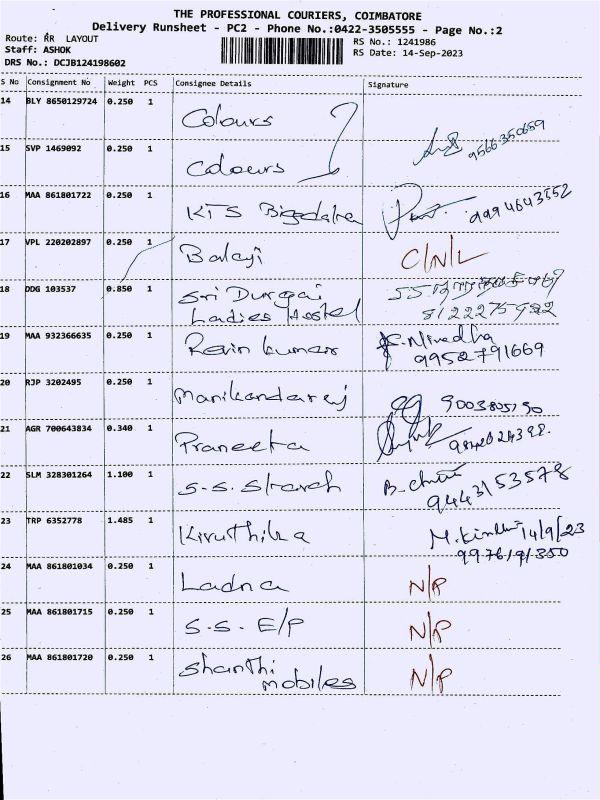 THE PROFESSIONAL COURIERS, COIMBATORE
Delivery Runsheet - PC2 - Phone No.:0422-3505555 - Page No.:2
Route: RR LAYOUT
Staff: ASHOK
DRS No.: DCJB124198602
RS No.: 1241986
RS Date: 14-Sep-2023
S No Consignment No Weight PCS Consignee Details Signature
14 BLY 8650129724 0.250 1 Colours
15 SVP 1469092 0.250 1 Colours 9566350659
16 MAA 861801722 0.250 1 KTS 9994643552
17 VPL 220202897 0.250 1 Balaji C/N/L
18 DDG 103537 0.850 1 Sri Durgai
Ladies Hostel 8122275922
19 MAA 932366635 0.250 1 Revin kumar Nivedha
9952791669
20 RJP 3202495 0.250 1 Manikandaraj 9003805190
21 AGR 700643834 0.340 1 Praneeta
22 SLM 328301264 1.100 1 S.S. Starch
9443153578
23 TRP 6352778 1.485 1 Kiruthika 14/9/23
24 MAA 861801034 0.250 1 Ladna N/P
25 MAA 861801715 0.250 1 S.S. E/P N/P
26 MAA 861801720 0.250 1 Shanthi
Mobiles N/P